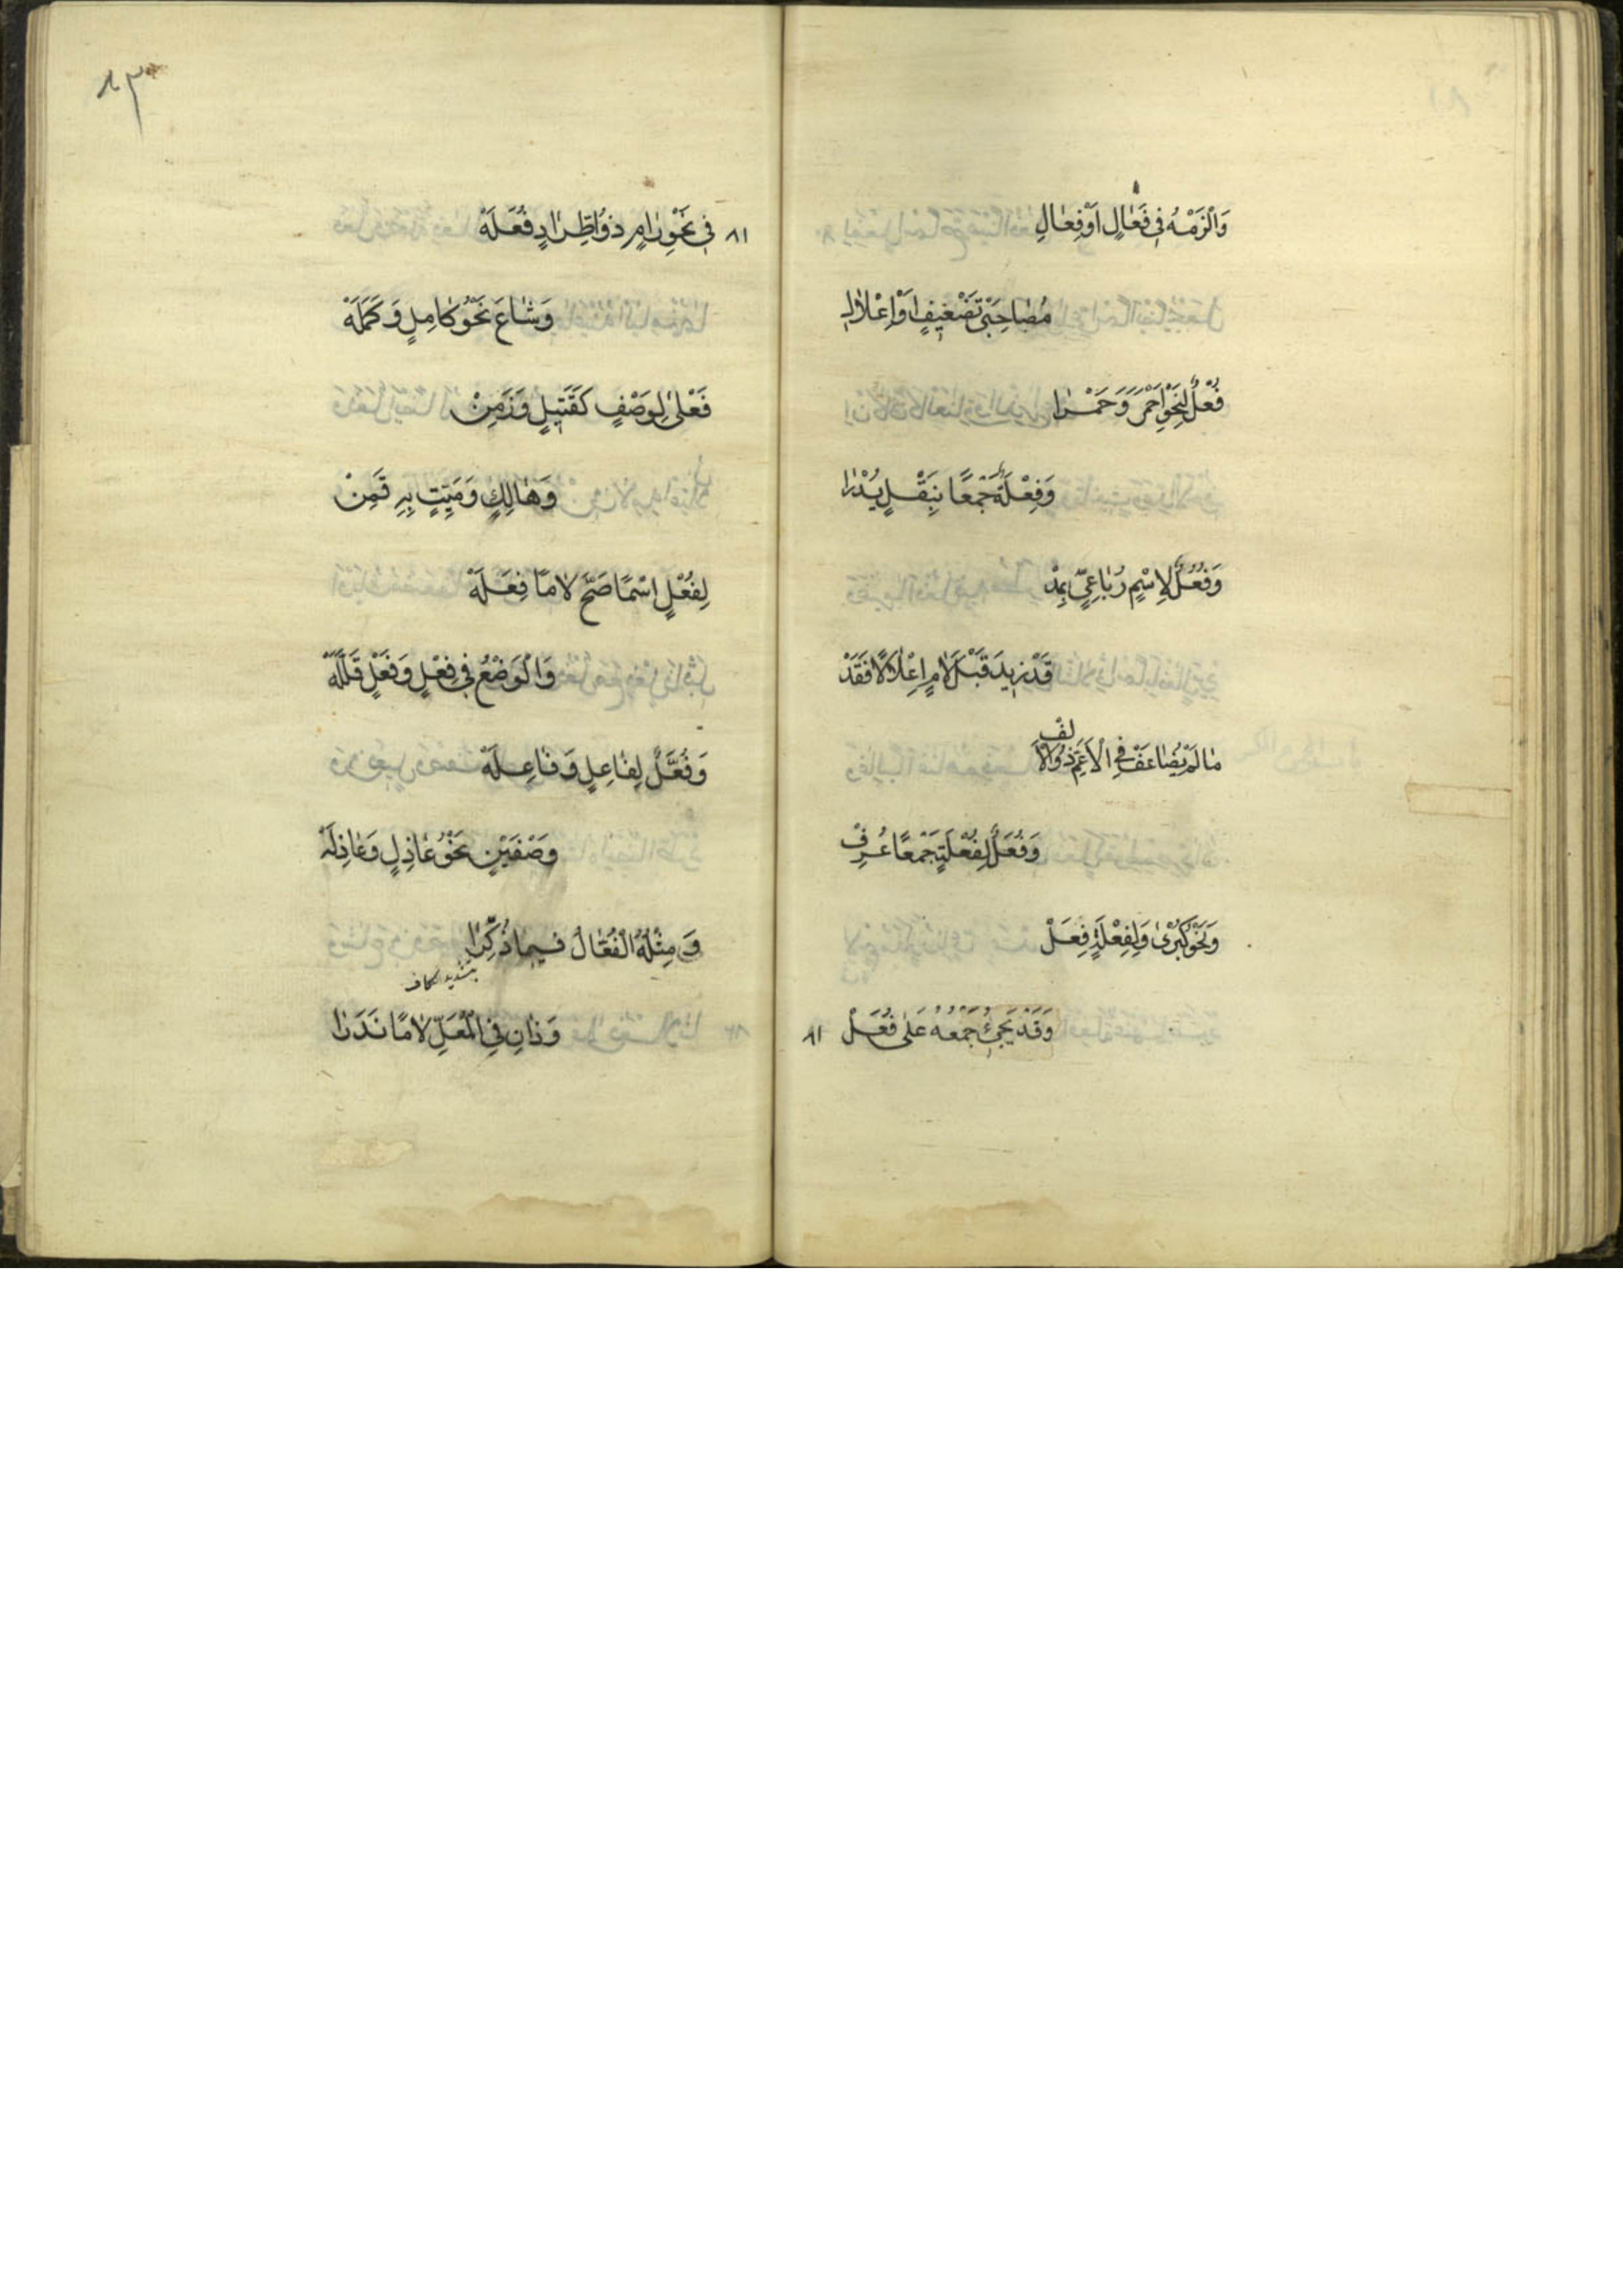 وَالْزَمْهُ فِي فَعَالٍ اَوْ فِعَالِ
مُصَاحِبَيْ تَضْعِيفٍ اَوْ اِعْلَالِ
فُعْلٌ لِنَحْوِ اَحْمَرَ وَحَمْرَا
وَفِعْلَةٌ جَمْعًا بِنَقْلٍ يُدْرَا
وَفُعُلٌ لِاسْمٍ رُبَاعِيٍّ بِمَدْ
قَدْ زِيدَ قَبْلَ لَامٍ اِعْلَالًا فَقَدْ
مَا لَمْ يُضَاعَفْ فِي الْاَعَمِّ ذُو الْاَلِفْ
وَفُعَلٌ لِفُعْلَةٍ جَمْعًا عُرِفْ
وَنَحْوِ كُبْرٰى وَلِفِعْلَةٍ فِعَلْ
وَقَدْ يَجِيْئُ جَمْعُهُ عَلٰى فُعَلْ
٨١
٨٣
٨١
فِي نَحْوِ رَامٍ ذُو اطِّرَادٍ فُعَلَهْ
وَشَاعَ نَحْوُ كَامِلٍ وَكَمَلَهْ
فَعْلٰى لِوَصْفٍ كَقَتِيلٍ وَزَمِنْ
وَهَالِكٍ وَمَيِّتٍ بِهِ قَمِنْ
لِفُعْلٍ اسْمًا صَحَّ لَامًا فِعَلَهْ
وَالْوَضْعُ فِي فِعْلٍ وَفَعْلٍ قَلَّلَهْ
وَفُعَّلٌ لِفَاعِلٍ وَفَاعِلَهْ
وَصْفَيْنِ نَحْوُ عَاذِلٍ وَعَاذِلَهْ
وَمِثْلُهُ الْفُعَّالُ فِيمَا ذُكِّرَا
بتشديد الكاف
وَذَانِ فِي الْمُعَلِّ لَامًا نَدَرَا